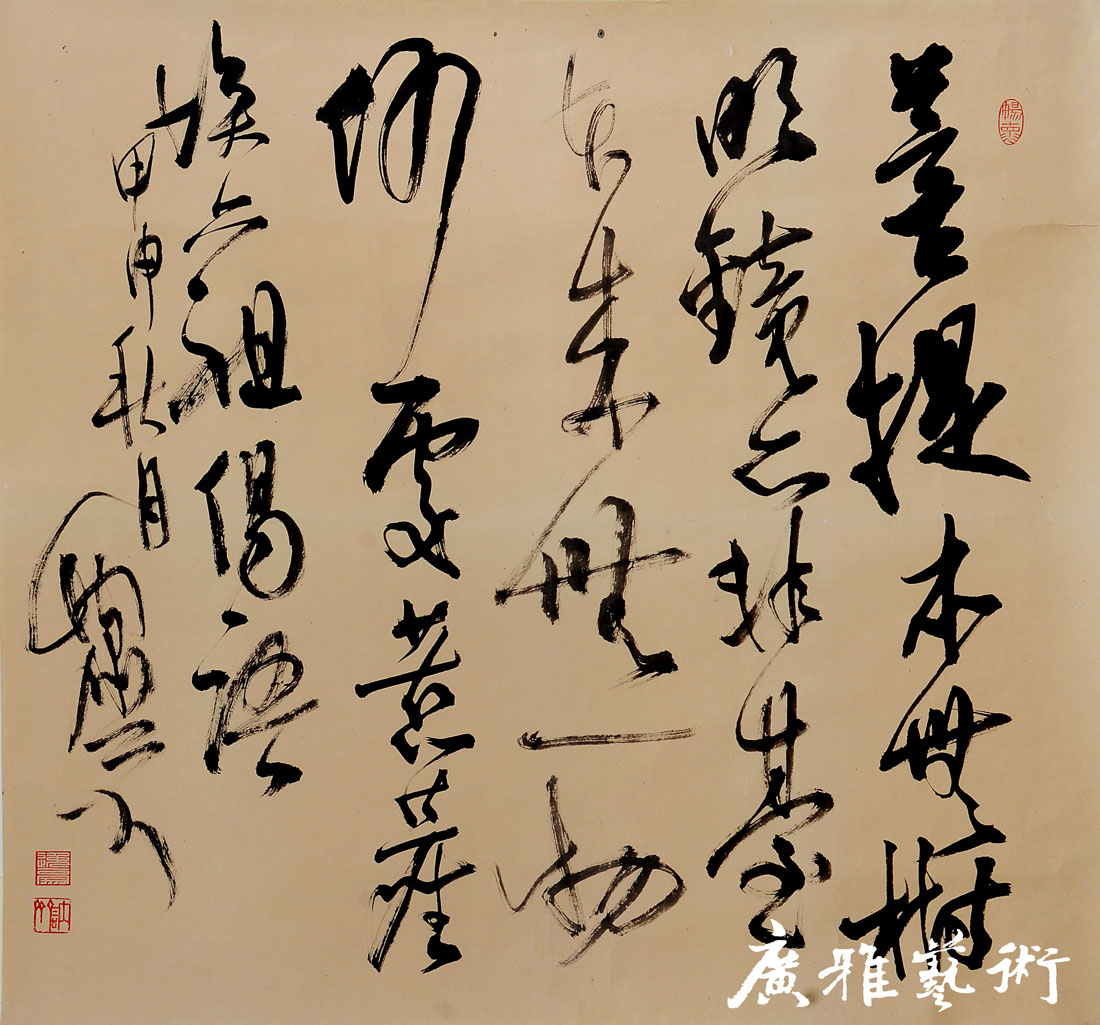 菩提本無樹
明鏡亦非臺
本来無一物
何處惹塵
埃六祖偈語
甲申秋月
廣雅藝術